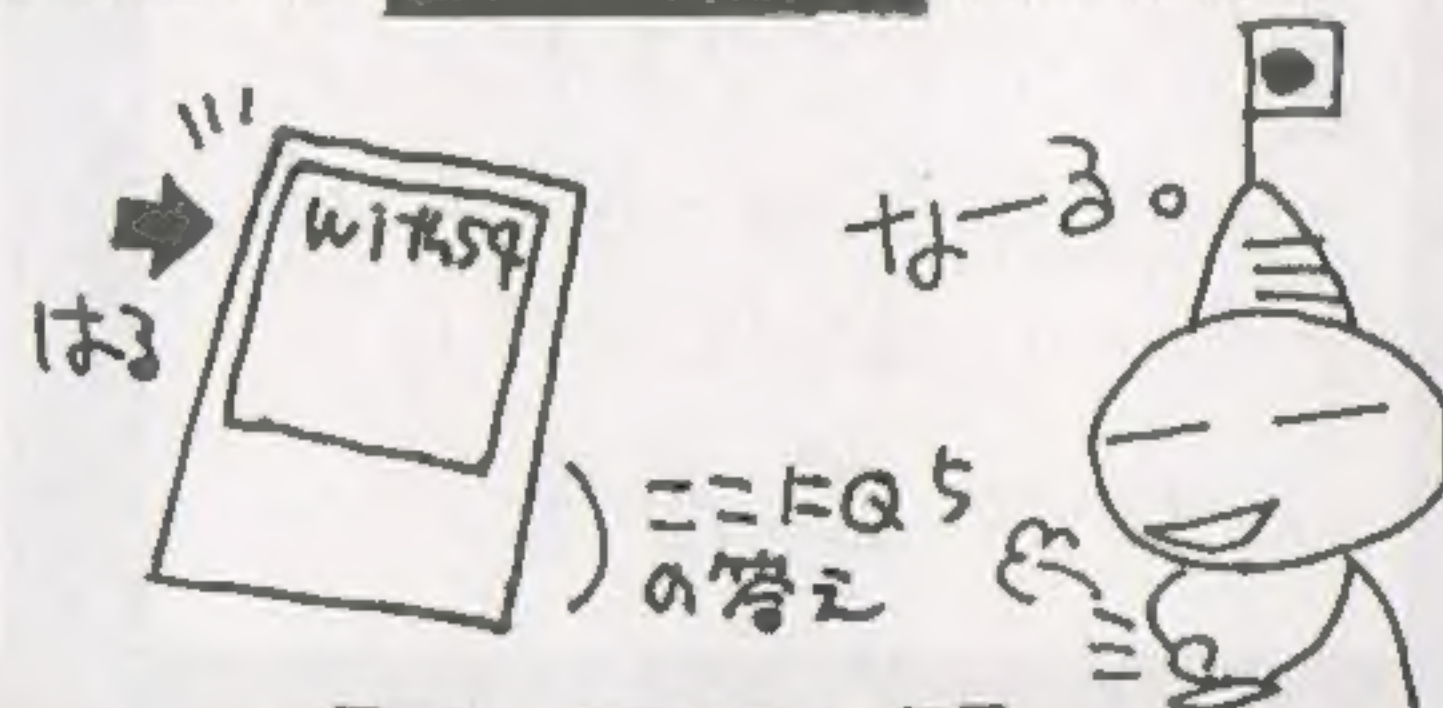 はる
with59
なーる。
ここにQ5
の答え